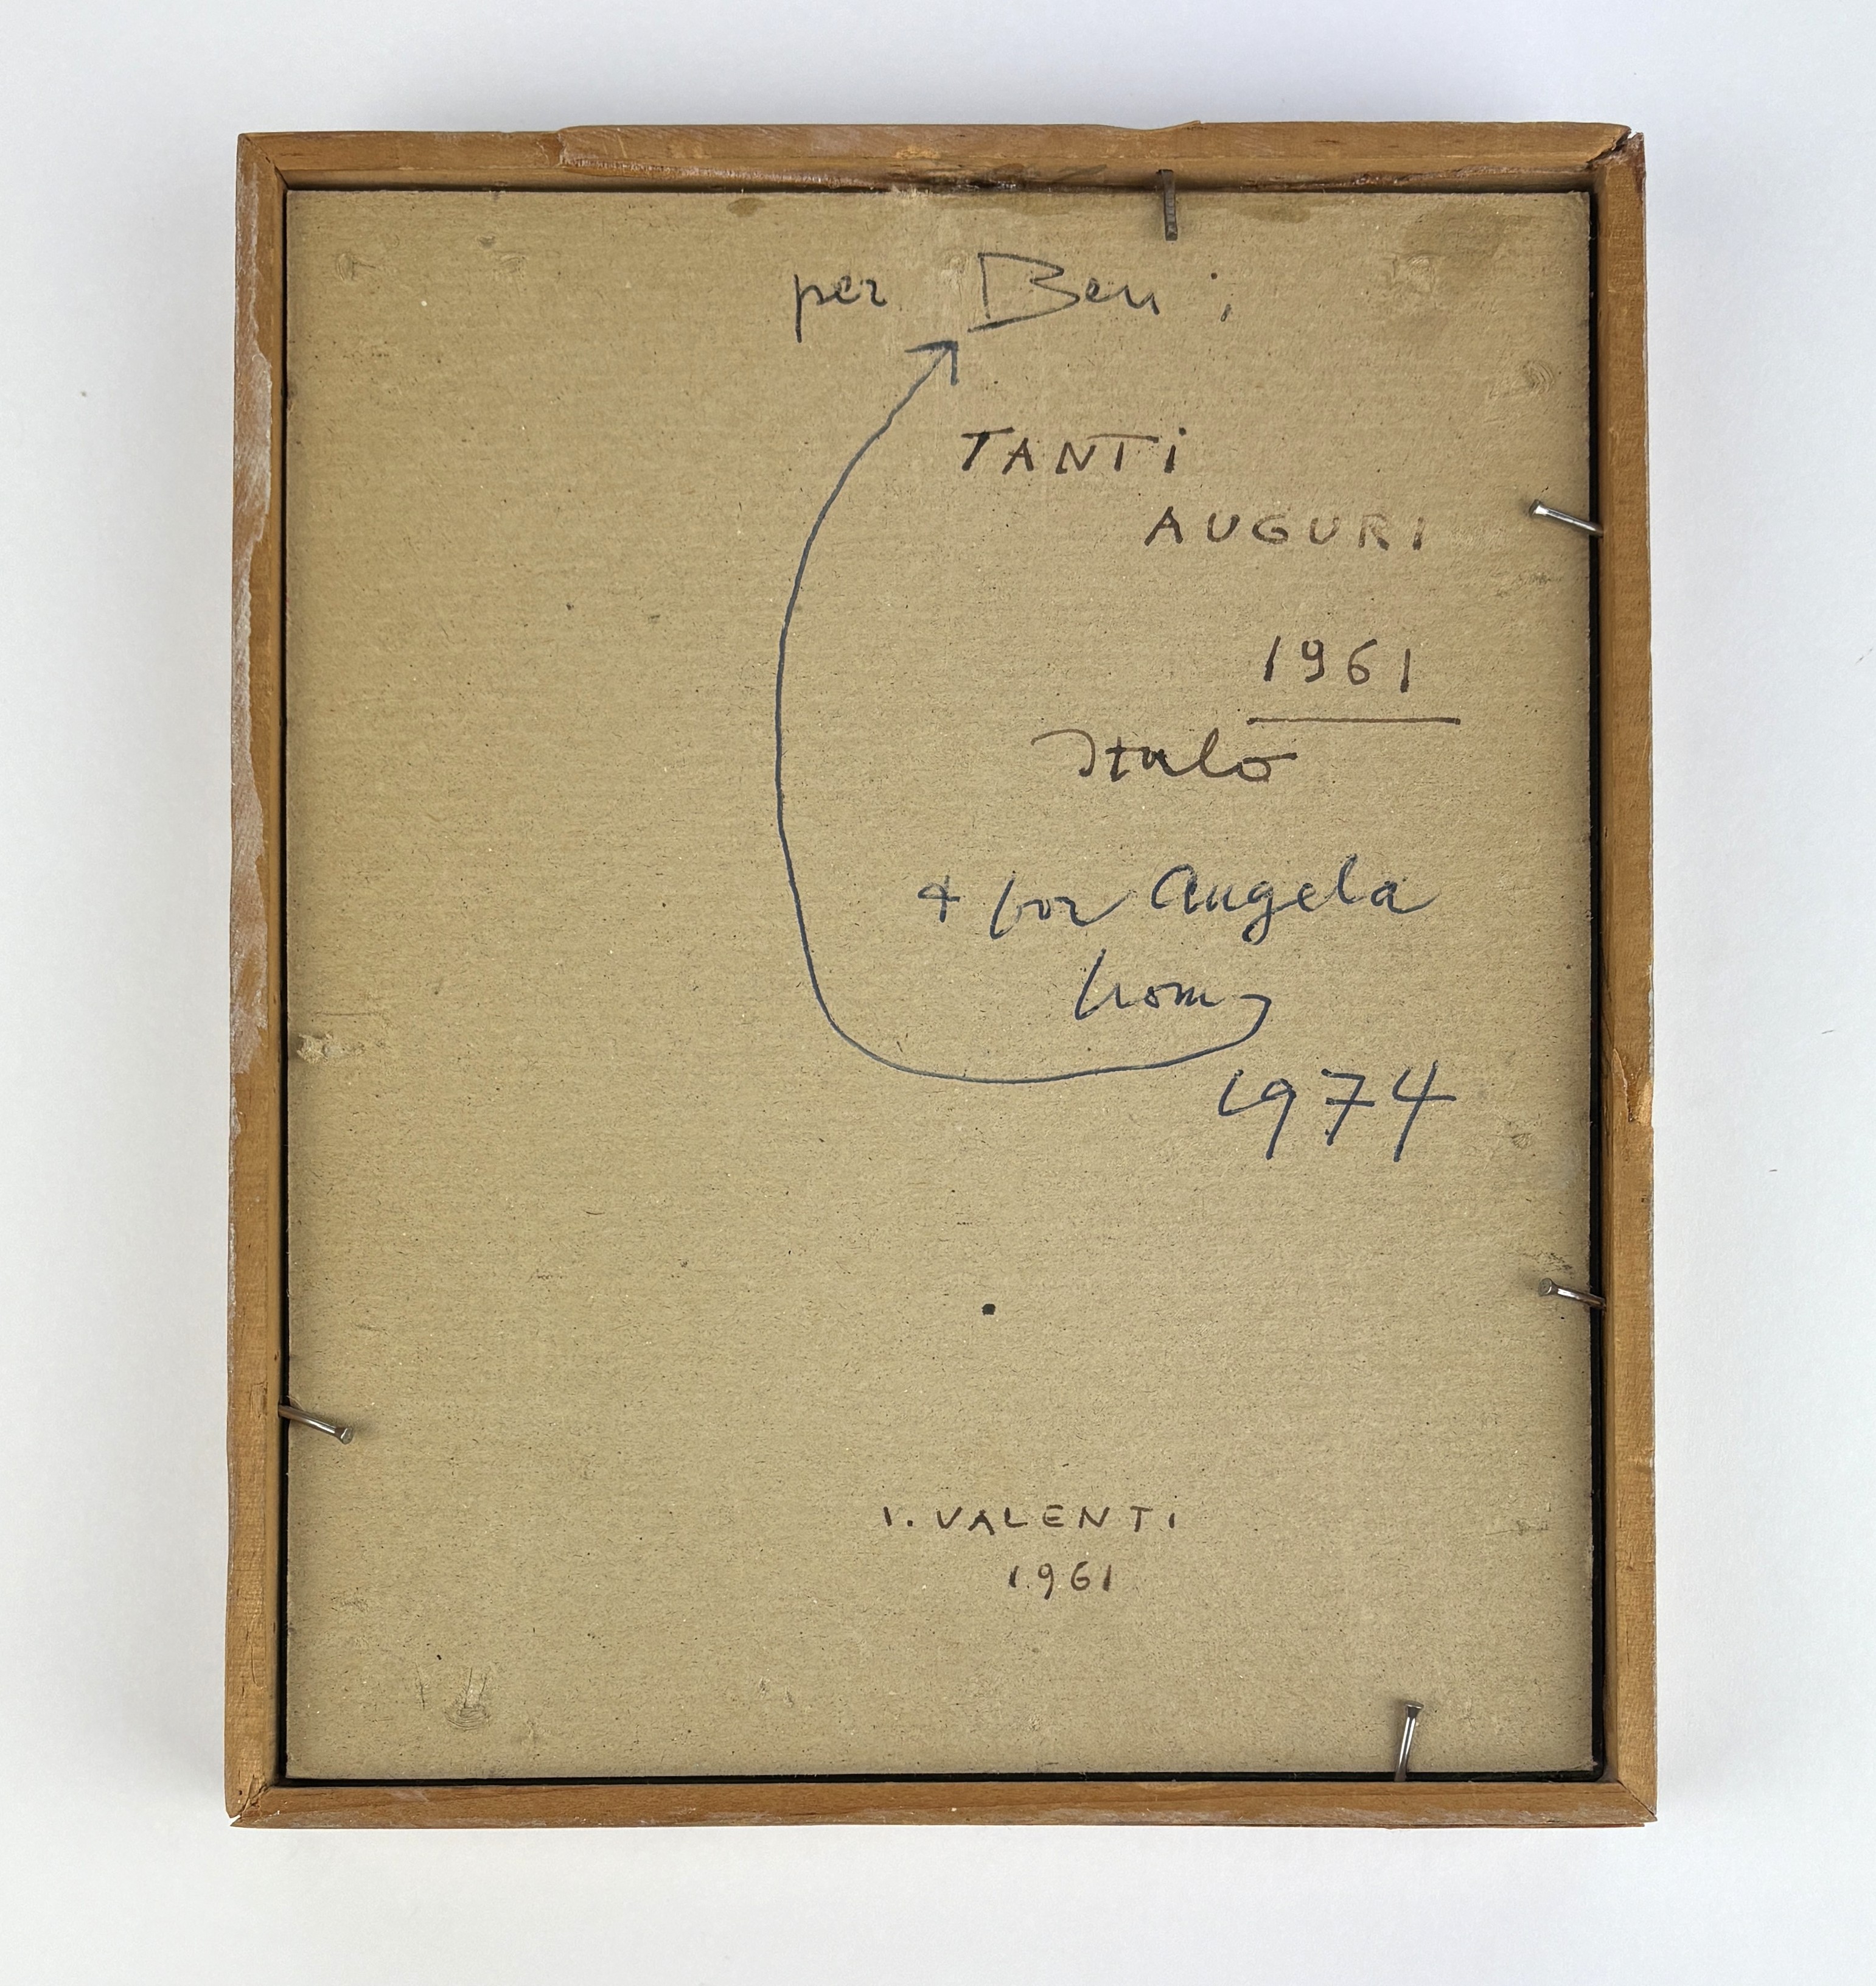 per Ben ;
TANTi
AUGURI
1961
Italo
+ for Angela
from
1974
I. VALENTI
1961